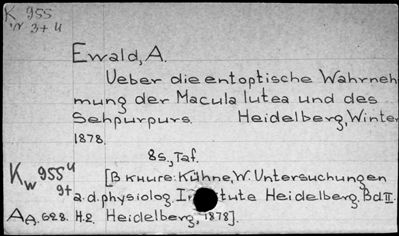 K 955
3+ 4
Ewald, A.
Ueber die entoptische Wahrneh
mung der Macula lutea und des
Sehpurpurs. Heidelberg, Winter
1878.
8s, Taf.
Kw 955 4
9+
[В книге: Kühne, W. Untersuchungen
a. d. physiolog. Institute Heidelberg. Bd. II.
AA. 628. H.2. Heidelberg, 1878].